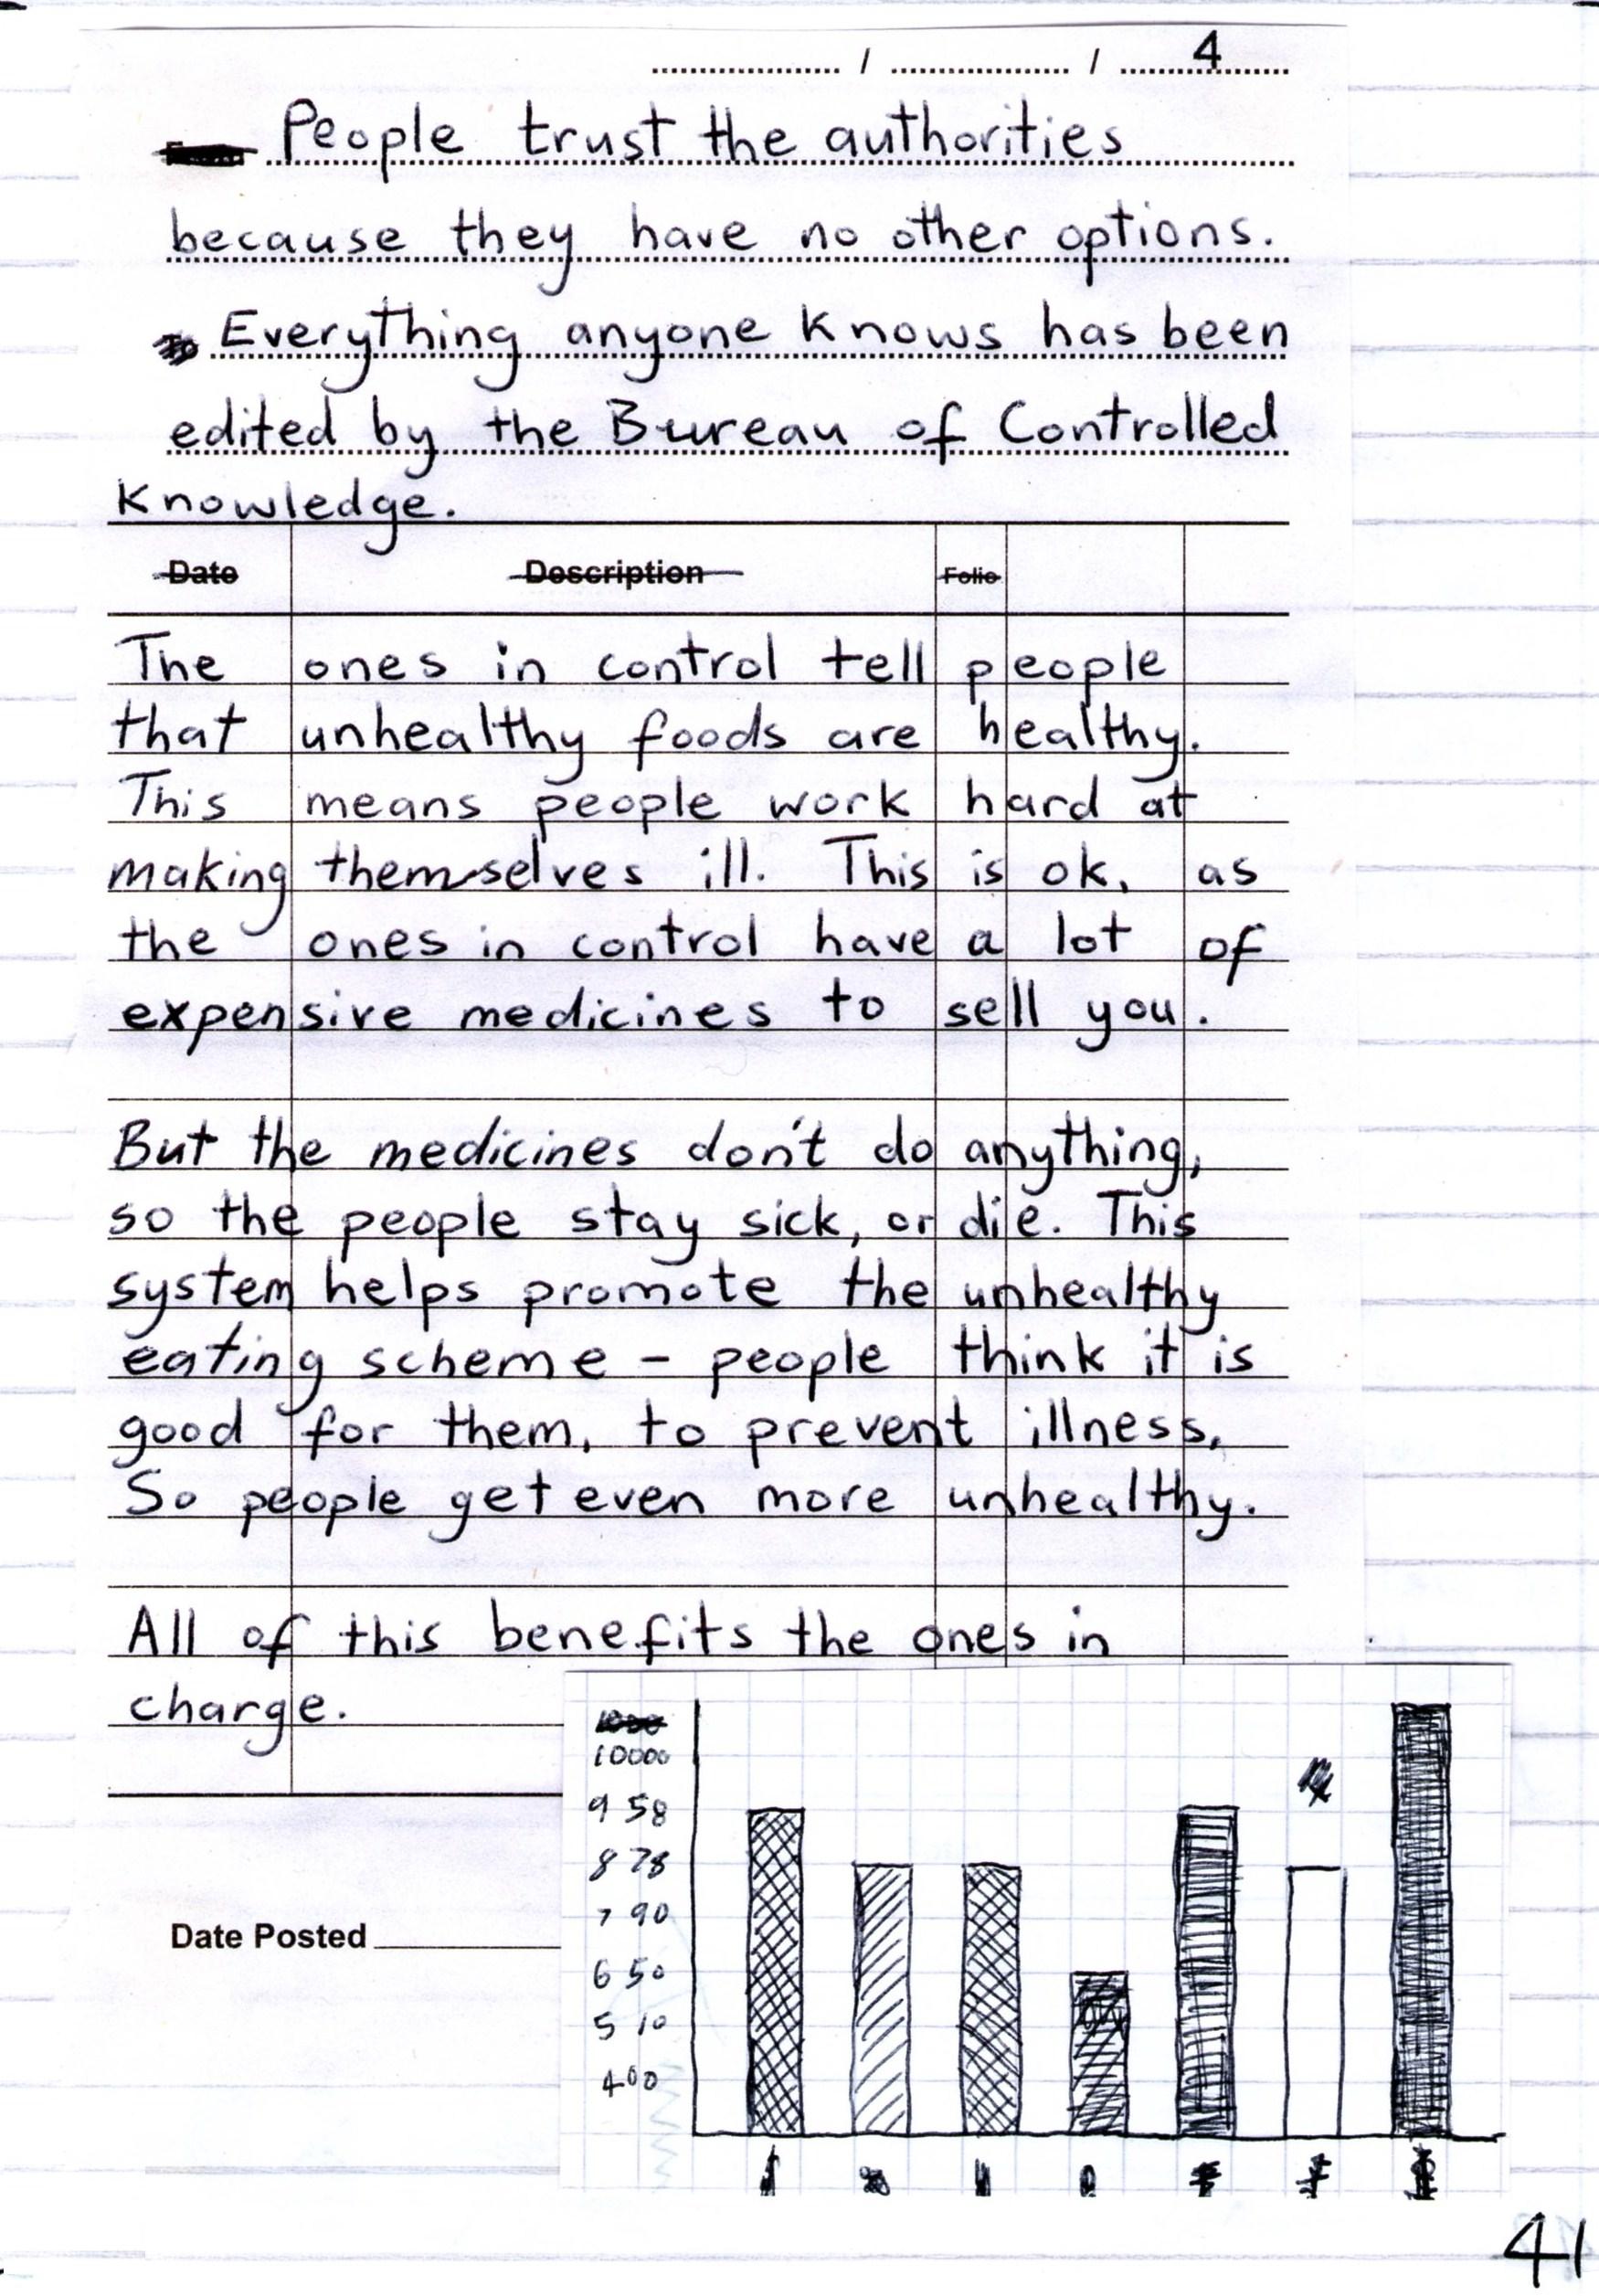 / / 4
People trust the authorities
because they have no other options.
Everything anyone knows has been
edited by the Bureau of Controlled
Knowledge.
Date Description Folio
The ones in control tell people
that unhealthy foods are healthy.
This means people work hard at
making themselves ill. This is ok, as
the ones in control have a lot of
expensive medicines to sell you.
But the medicines don't do anything,
so the people stay sick, or die. This
system helps promote the unhealthy
eating scheme - people think it is
good for them, to prevent illness,
So people get even more unhealthy.
All of this benefits the ones in
charge.
10000
9 58
8 78
7 90
6 50
5 10
400
Date Posted
41